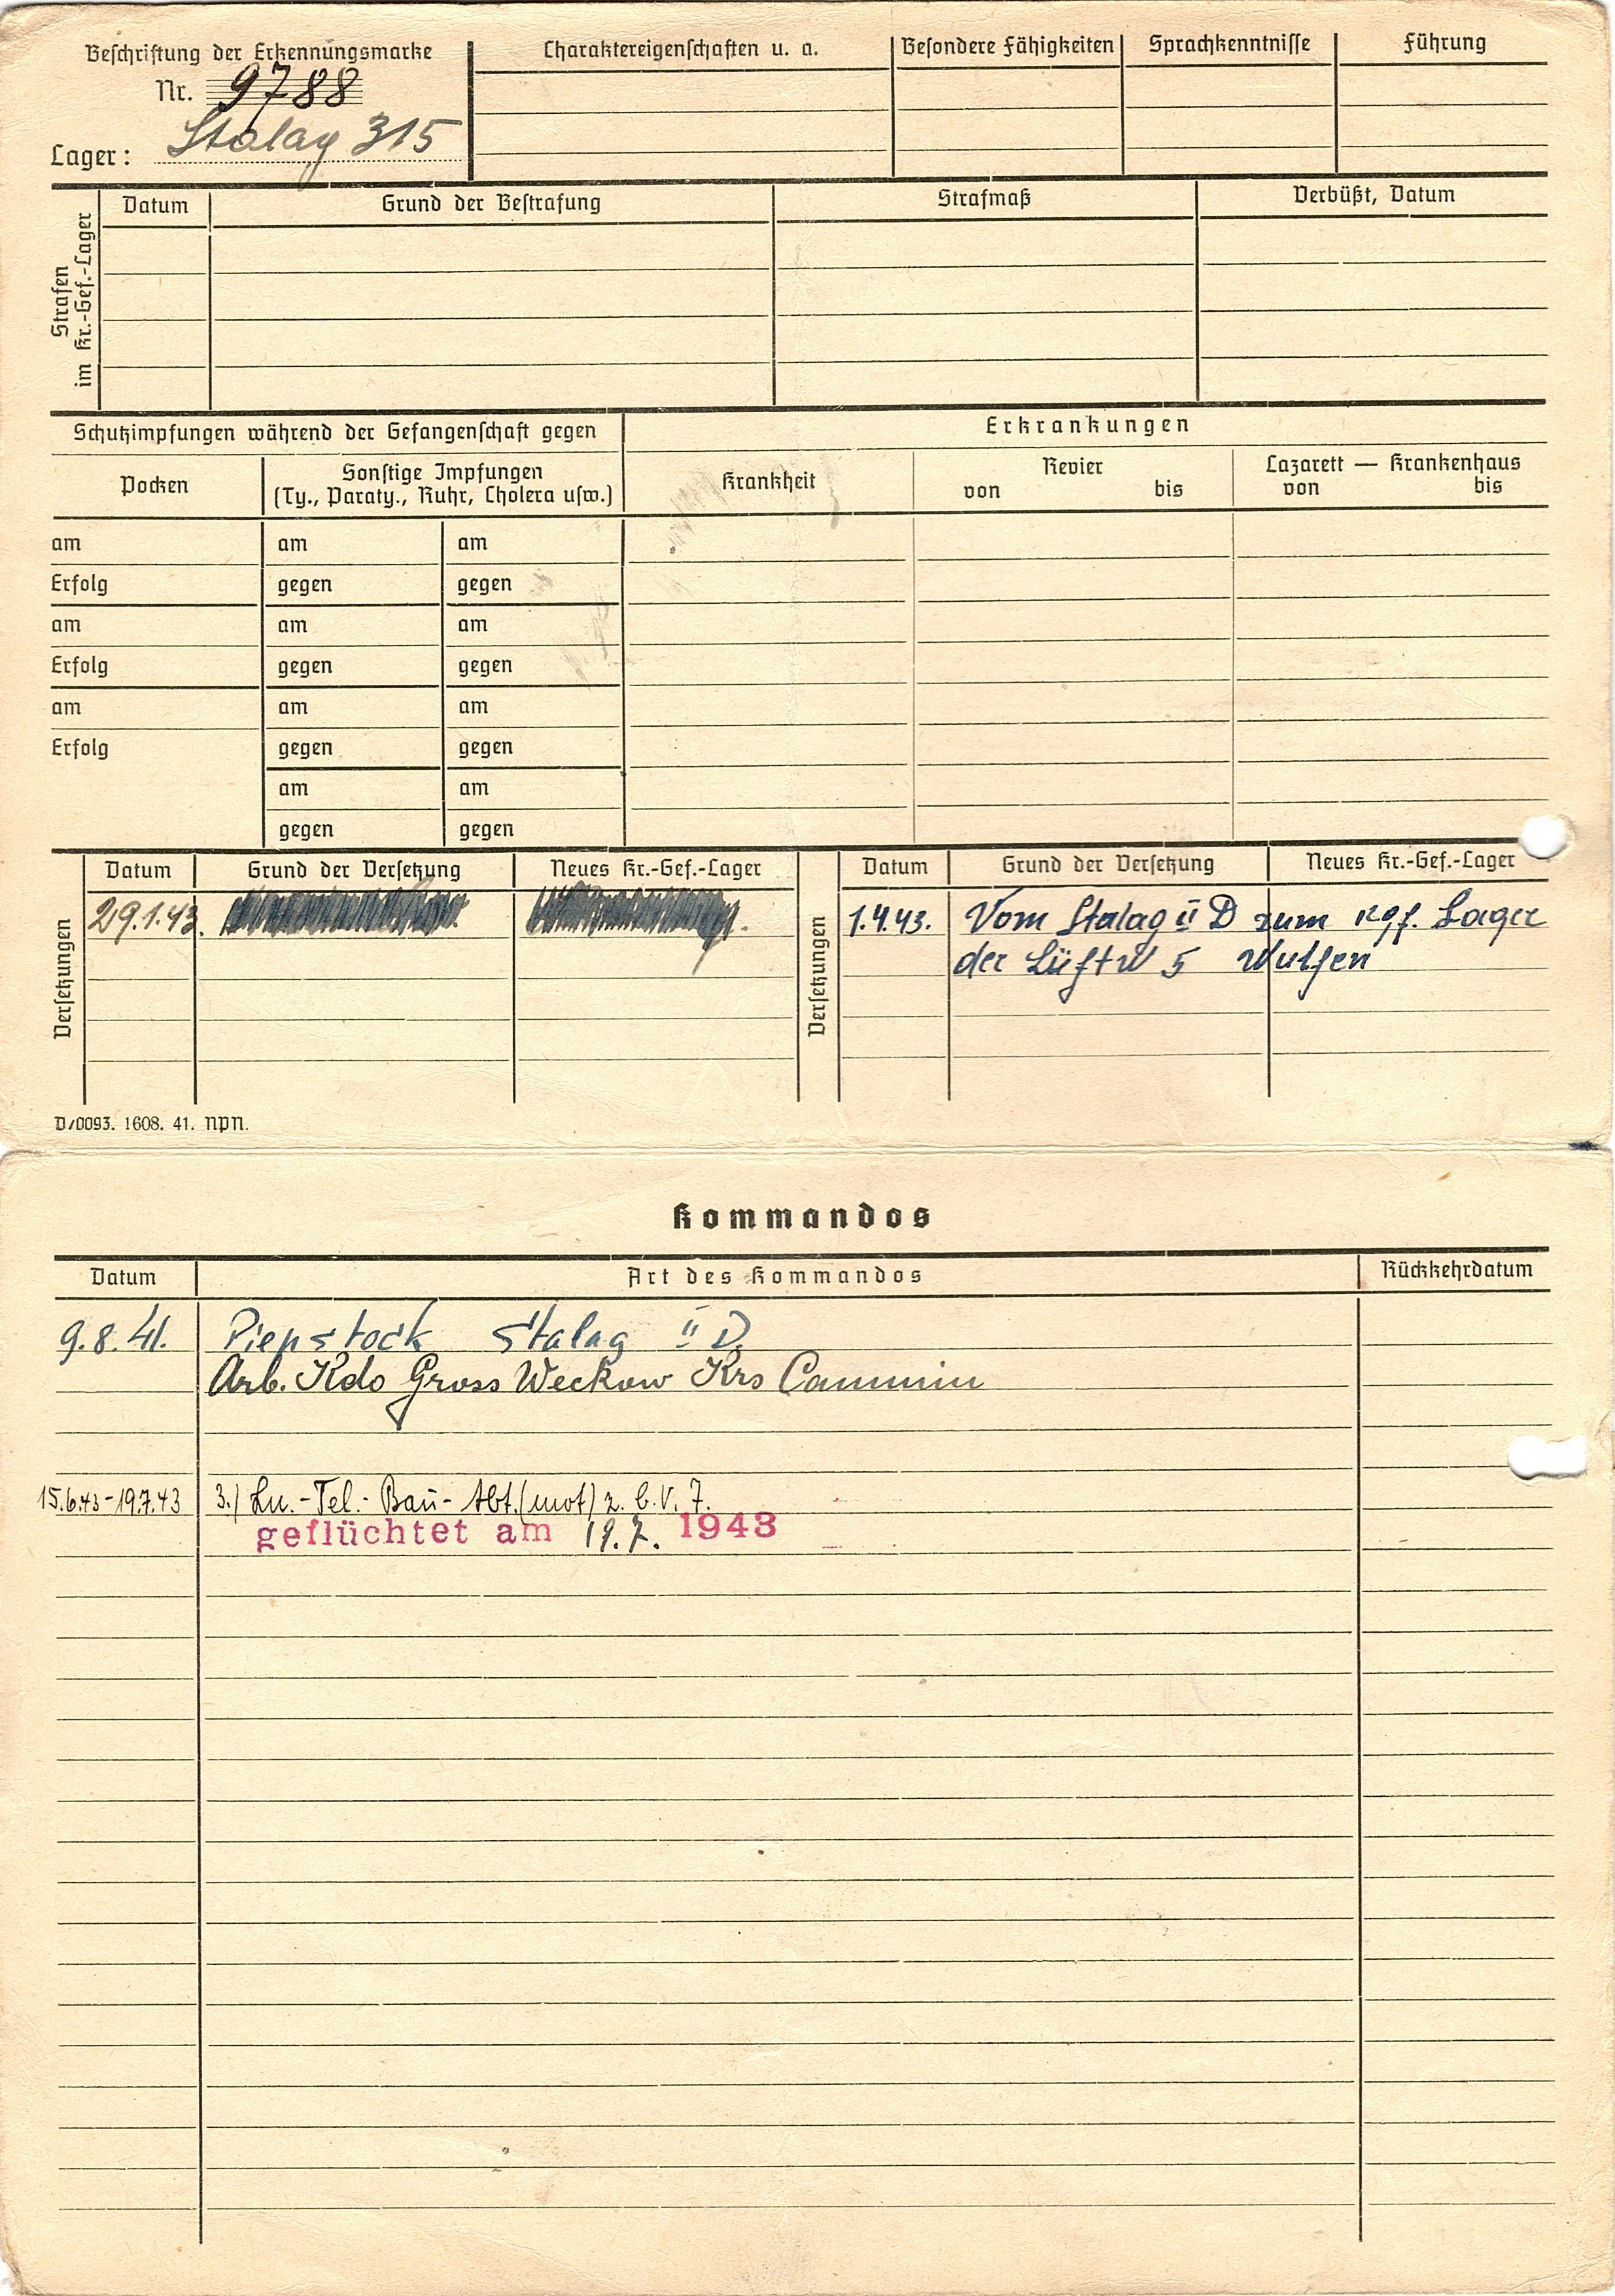 Beschriftung der Erkennungsmarke
Nr. 9788
Lager: Stalag 315
Charaktereigenschaften u. a.
Besondere Fähigkeiten
Sprachkenntnisse
Führung
Strafen
im Kr.-Gef.-Lager
Datum
Grund der Bestrafung
Strafmaß
Verbüßt, Datum
Schutzimpfungen während der Gefangenschaft gegen
Erkrankungen
Pocken
Sonstige Impfungen
(Ty., Paraty., Ruhr, Cholera usw.)
Krankheit
Revier
von bis
Lazarett — Krankenhaus
von bis
am am am
Erfolg gegen gegen
am am am
Erfolg gegen gegen
am am am
Erfolg gegen gegen
am am
gegen gegen
Versetzungen
Datum Grund der Versetzung Neues Kr.-Gef.-Lager
29.1.43.
Versetzungen
Datum Grund der Versetzung Neues Kr.-Gef.-Lager
1.4.43. Vom Stalag II D zum kgf. Lager
der Luftw 5 Wulfen
D/0093. 1608. 41. NPN.
Kommandos
Datum Art des Kommandos Rückkehrdatum
9.8.41. Piepstock Stalag II D.
Arb. Kdo Gross Weckow Krs Cammin
15.6.43-19.7.43 3./ Ln.-Tel.-Bau-Abt.(mot) z. b. V. 7.
geflüchtet am 19.7. 1943